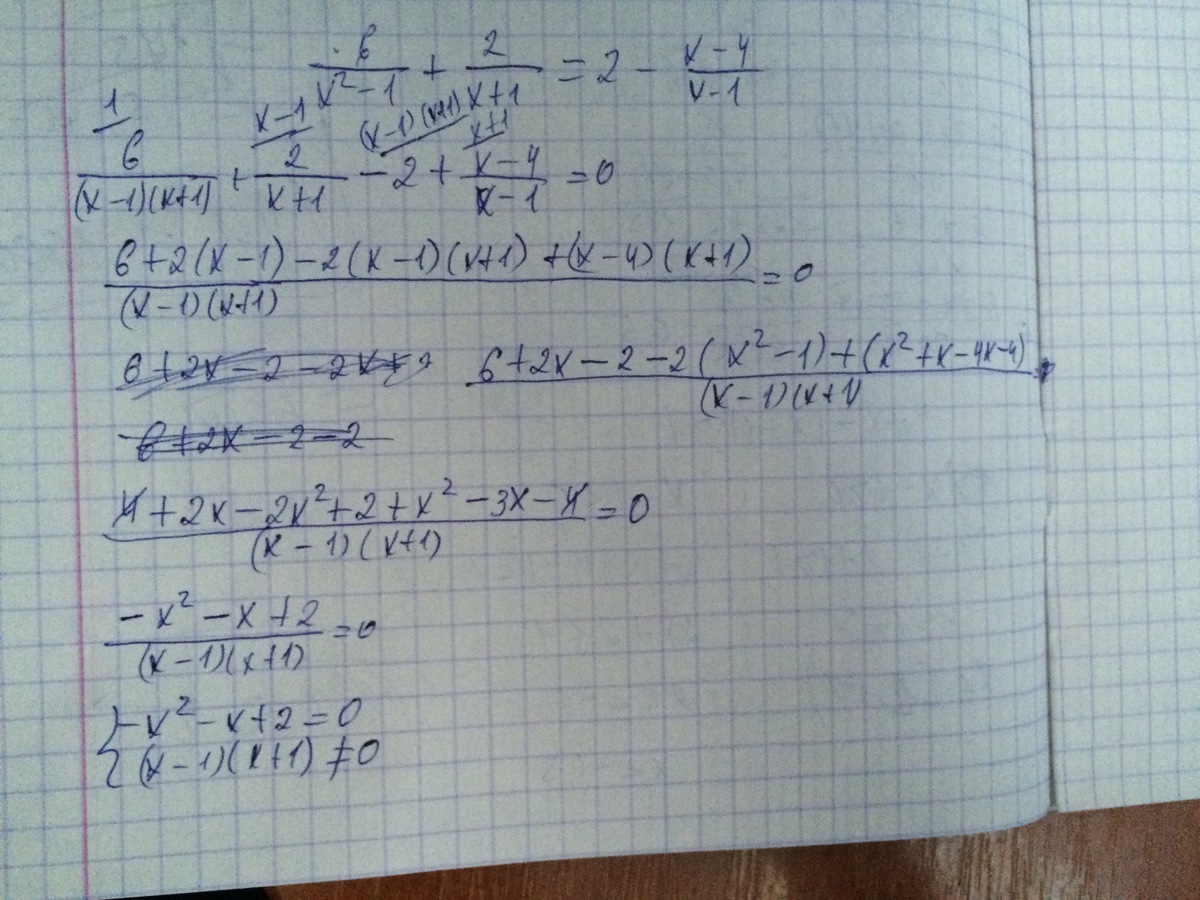 6/(x²-1) + 2/(x+1) = 2 - (x-4)/(x-1)
1 x-1 (x-1)(x+1) x+1
6/((x-1)(x+1)) + 2/(x+1) - 2 + (x-4)/(x-1) = 0
(6+2(x-1)-2(x-1)(x+1)+(x-4)(x+1))/((x-1)(x+1)) = 0
6+2x-2-2x+2 (6+2x-2-2(x²-1)+(x²+x-4x-4))/((x-1)(x+1))
6+2x-2-2
(4+2x-2x²+2+x²-3x-4)/((x-1)(x+1)) = 0
(-x²-x+2)/((x-1)(x+1)) = 0
{ -x²-x+2=0
(x-1)(x+1)≠0